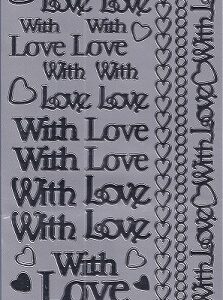 Love Love
With With
Love Love
With With
Love Love
With Love
With Love
With Love
With Love
With
Love
With Love With Love With Love